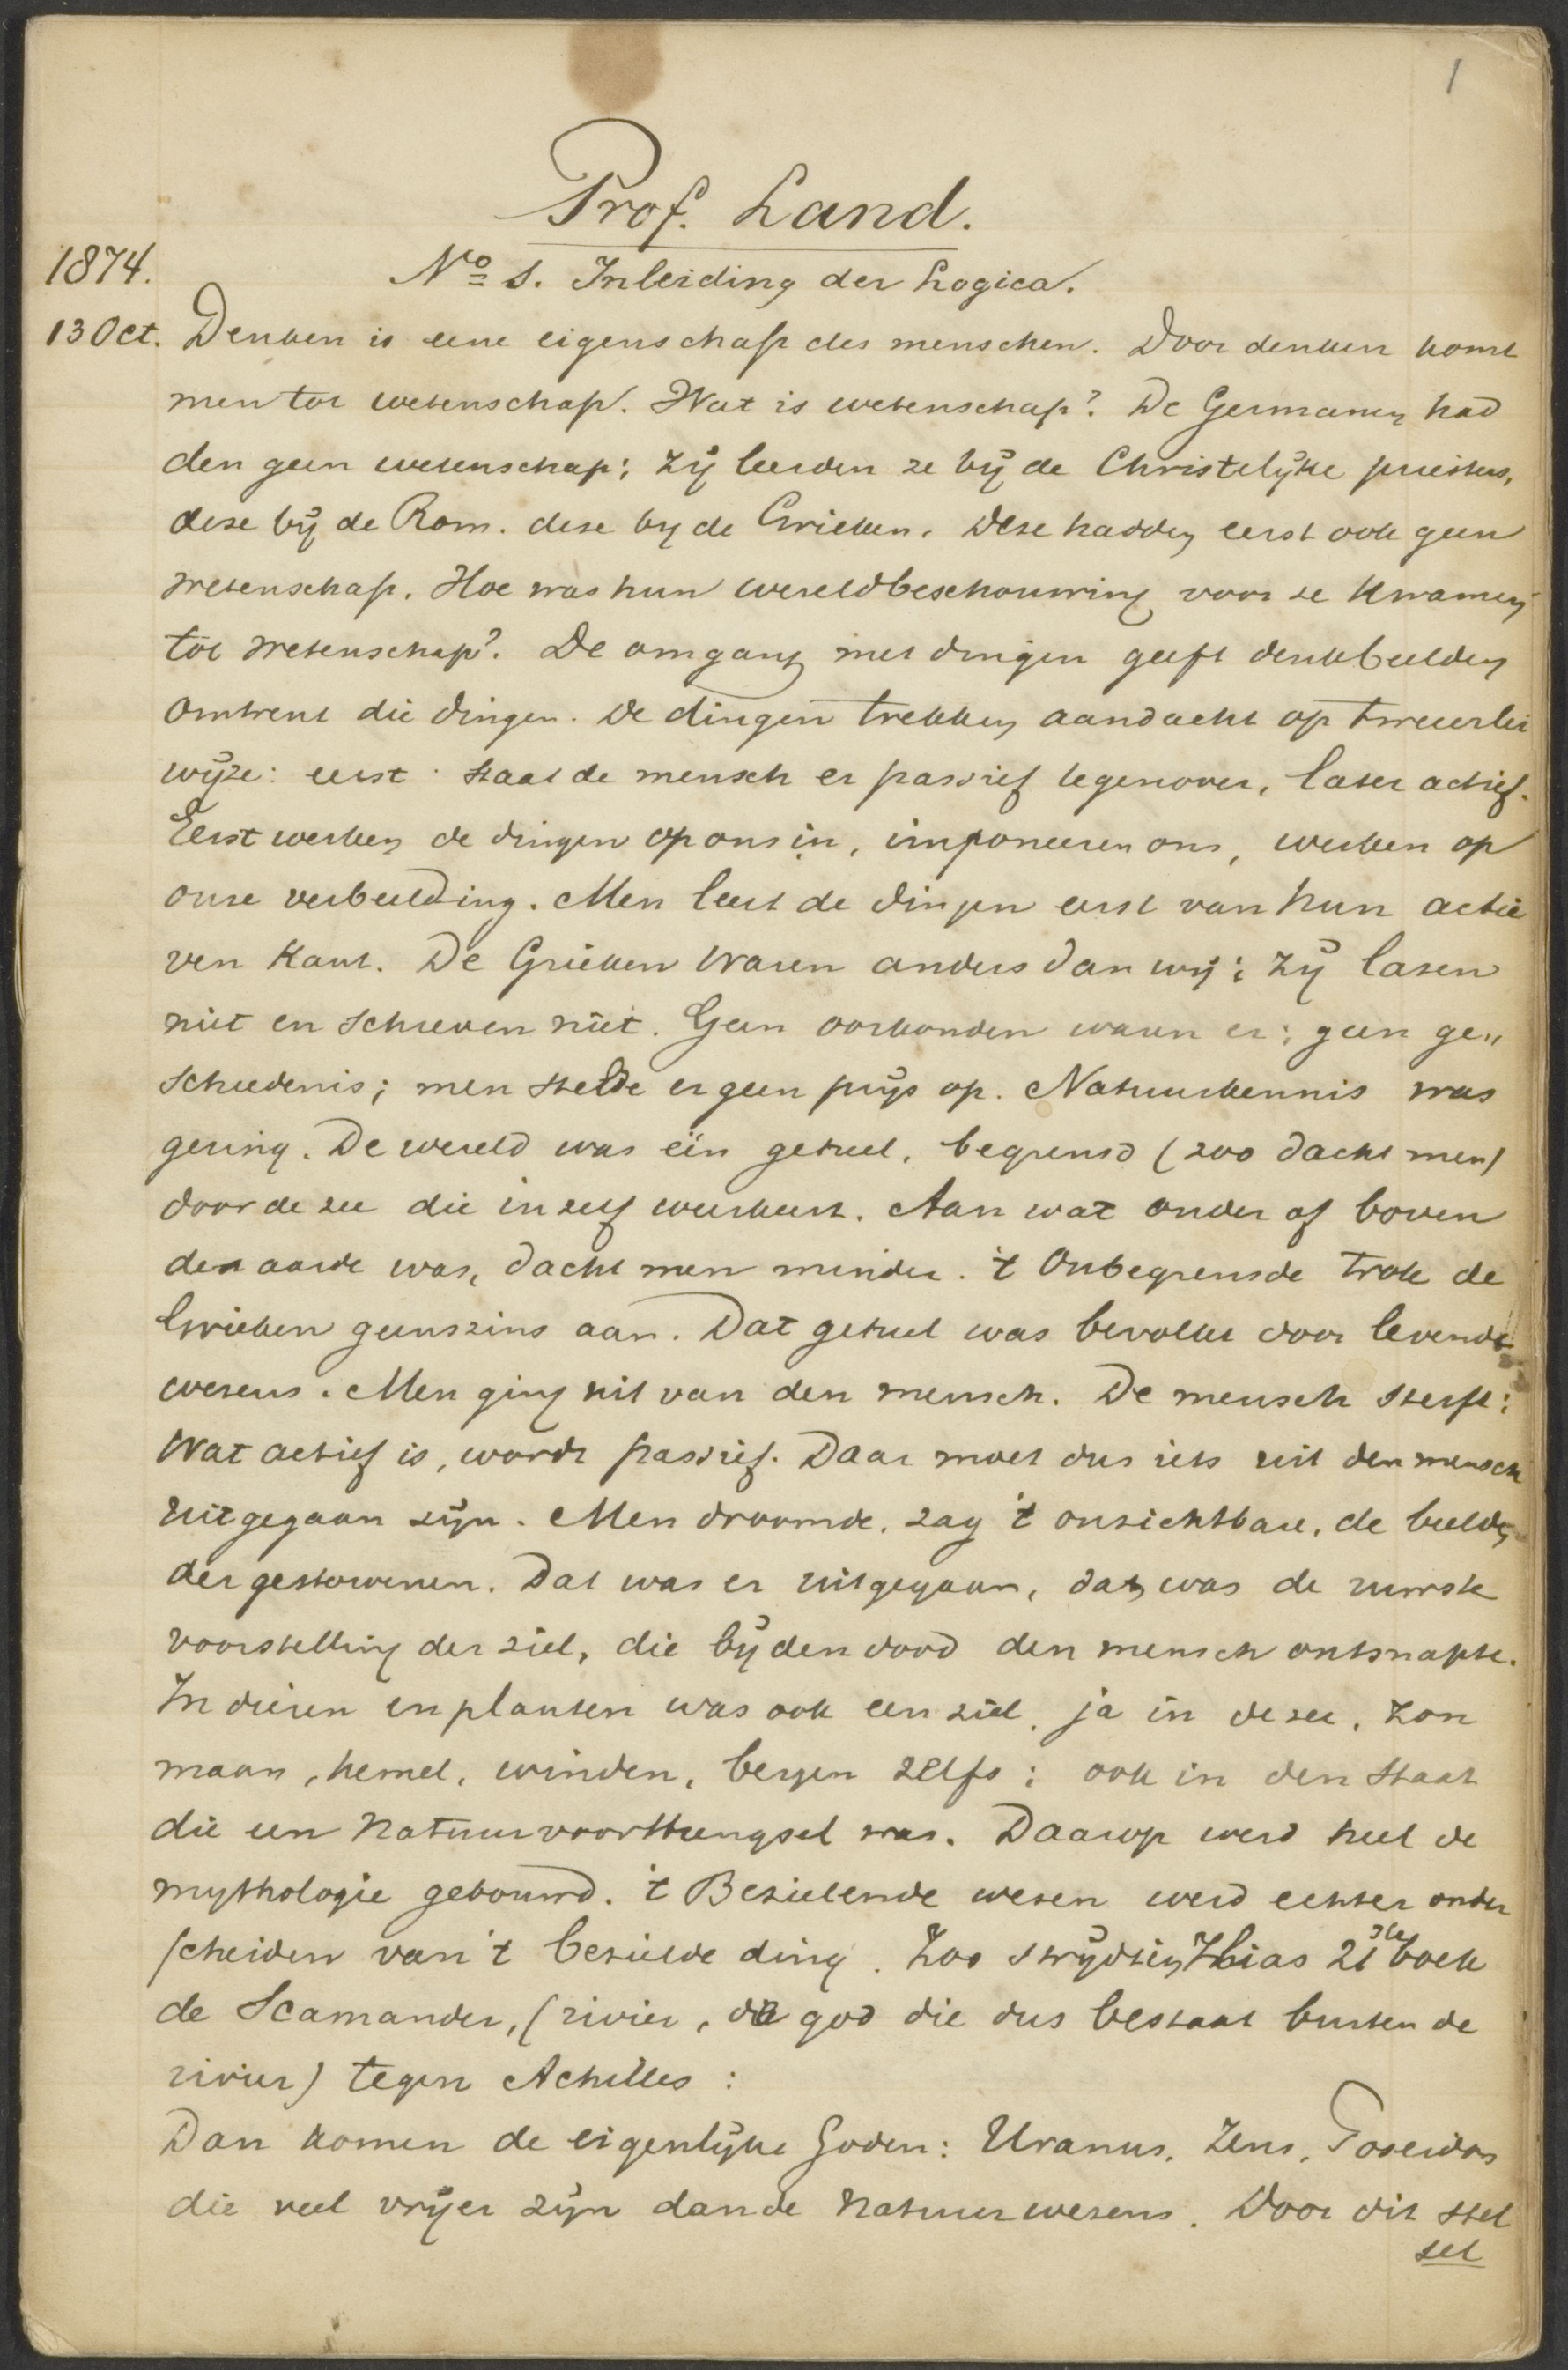 1
Prof. Land.
1874. No 1. Inleiding der Logica.
13 Oct. Denken is eene eigenschap des menschen. Door denken komt
men tot wetenschap. Wat is wetenschap? De Germanen had
den geen wetenschap; zij leerden ze bij de Christelijke priesters,
deze bij de Rom. deze by de Grieken. Deze hadden eerst ook geen
wetenschap. Hoe was hun wereldbeschouwing voor ze kwamen
tot wetenschap? De omgang met dingen geeft denkbeelden
omtrent die dingen. De dingen trekken aandacht op tweeerlei
wijze: eerst staat de mensch er passief tegenover, later actief.
Eerst werken de dingen op ons in, imponeeren ons, werken op
onze verbeelding. Men leert de dingen eerst van hun actie
ven kant. De Grieken waren anders dan wij; zij lazen
niet en schreven niet. Geen oorkonden waren er; geen ge„
schiedenis; men stelde er geen prijs op. Natuurkennis was
gering. De wereld was één geheel, begrensd (zoo dacht men)
door de zee die in zelf weerkeert. Aan wat onder of boven
den aarde was, dacht men minder. 't Onbegrensde trok de
Grieken geenszins aan. Dat geheel was bevolkt door levende
wezens. Men ging uit van den mensch. De mensch sterft;
Wat actief is, wordt passief. Daar moet dus iets uit den mensch
uitgegaan zijn. Men droomde, zag 't onzichtbare, de beelden
der gestorvenen. Dat was er uitgegaan, dat was de ruwste
voorstelling der ziel, die bij den dood den mensch ontsnapte.
In dieren en planten was ook een ziel, ja in de zee, zon
maan, hemel, winden, bergen zelfs; ook in den staat
die een natuurvoortbrengsel was. Daarop werd heel de
mythologie gebouwd. 't Bezielende wezen werd echter onder
scheiden van 't bezielde ding. Zoo strijdt in Ilias 21ste boek
de Scamander, (rivier, de god die dus bestaat buiten de
rivier) tegen Achilles:
Dan komen de eigenlijke Goden: Uranus, Zeus, Poseidon
die veel vrijer zijn dan de natuurwezens. Door dit stel
sel